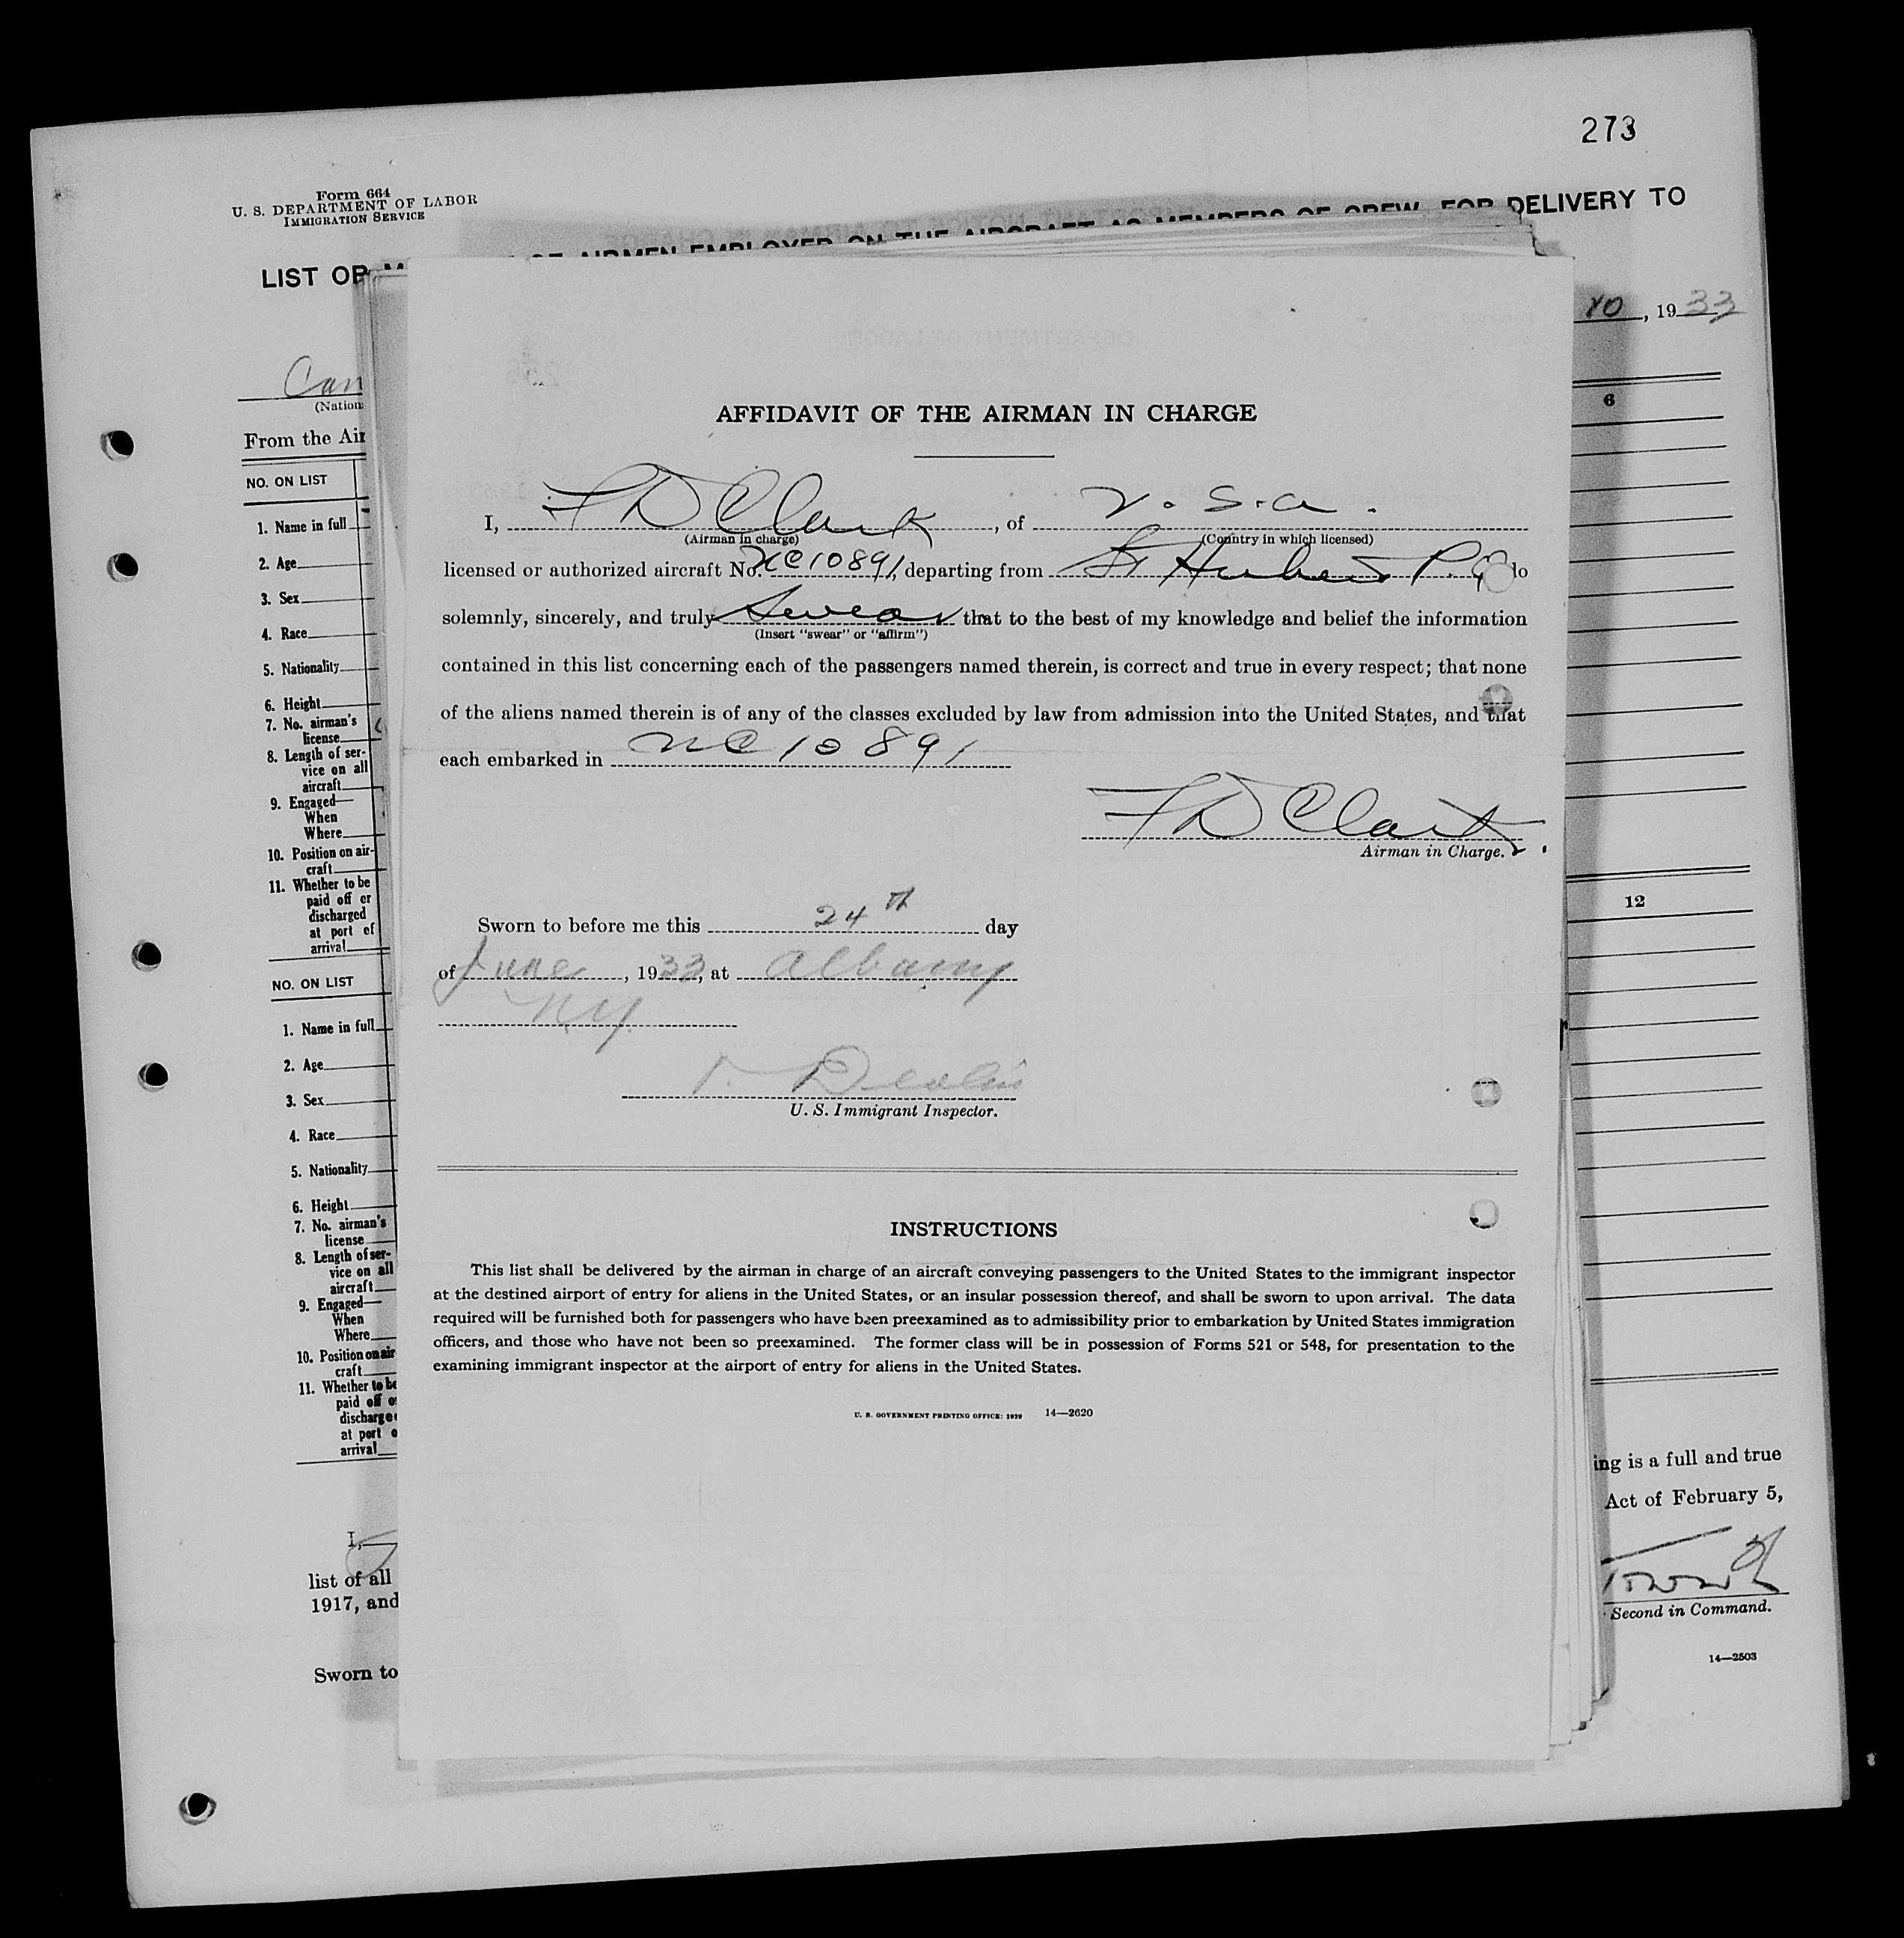 273
Form 664
U. S. DEPARTMENT OF LABOR
IMMIGRATION SERVICE
LIST OR AIRMEN EMPLOYED ON THE AIRCRAFT AS MEMBERS OF CREW, FOR DELIVERY TO
10, 1933
Can
(Nation
From the Air
NO. ON LIST
1. Name in full
2. Age
3. Sex
4. Race
5. Nationality
6. Height
7. No. airman's
license
8. Length of ser-
vice on all
aircraft
9. Engaged—
When
Where
10. Position on air-
craft
11. Whether to be
paid off or
discharged
at port of
arrival
NO. ON LIST
1. Name in full
2. Age
3. Sex
4. Race
5. Nationality
6. Height
7. No. airman's
license
8. Length of ser-
vice on all
aircraft
9. Engaged—
When
Where
10. Position on air
craft
11. Whether to be
paid off o
discharge
at port o
arrival
I,
list of all
1917, and
Sworn to
AFFIDAVIT OF THE AIRMAN IN CHARGE
I, F D Clark, of U. S. a.
(Airman in charge) (Country in which licensed)
licensed or authorized aircraft No. NC10891, departing from St Hubert P.Q. do
solemnly, sincerely, and truly Swear that to the best of my knowledge and belief the information
(Insert "swear" or "affirm")
contained in this list concerning each of the passengers named therein, is correct and true in every respect; that none
of the aliens named therein is of any of the classes excluded by law from admission into the United States, and that
each embarked in NC10891
F D Clark
Airman in Charge.
Sworn to before me this 24th day
of June, 1933, at Albany
NY.
Devlin
U. S. Immigrant Inspector.
INSTRUCTIONS
This list shall be delivered by the airman in charge of an aircraft conveying passengers to the United States to the immigrant inspector
at the destined airport of entry for aliens in the United States, or an insular possession thereof, and shall be sworn to upon arrival. The data
required will be furnished both for passengers who have been preexamined as to admissibility prior to embarkation by United States immigration
officers, and those who have not been so preexamined. The former class will be in possession of Forms 521 or 548, for presentation to the
examining immigrant inspector at the airport of entry for aliens in the United States.
U. S. GOVERNMENT PRINTING OFFICE: 1929 14—2620
6
12
ing is a full and true
Act of February 5,
Second in Command.
14—2503